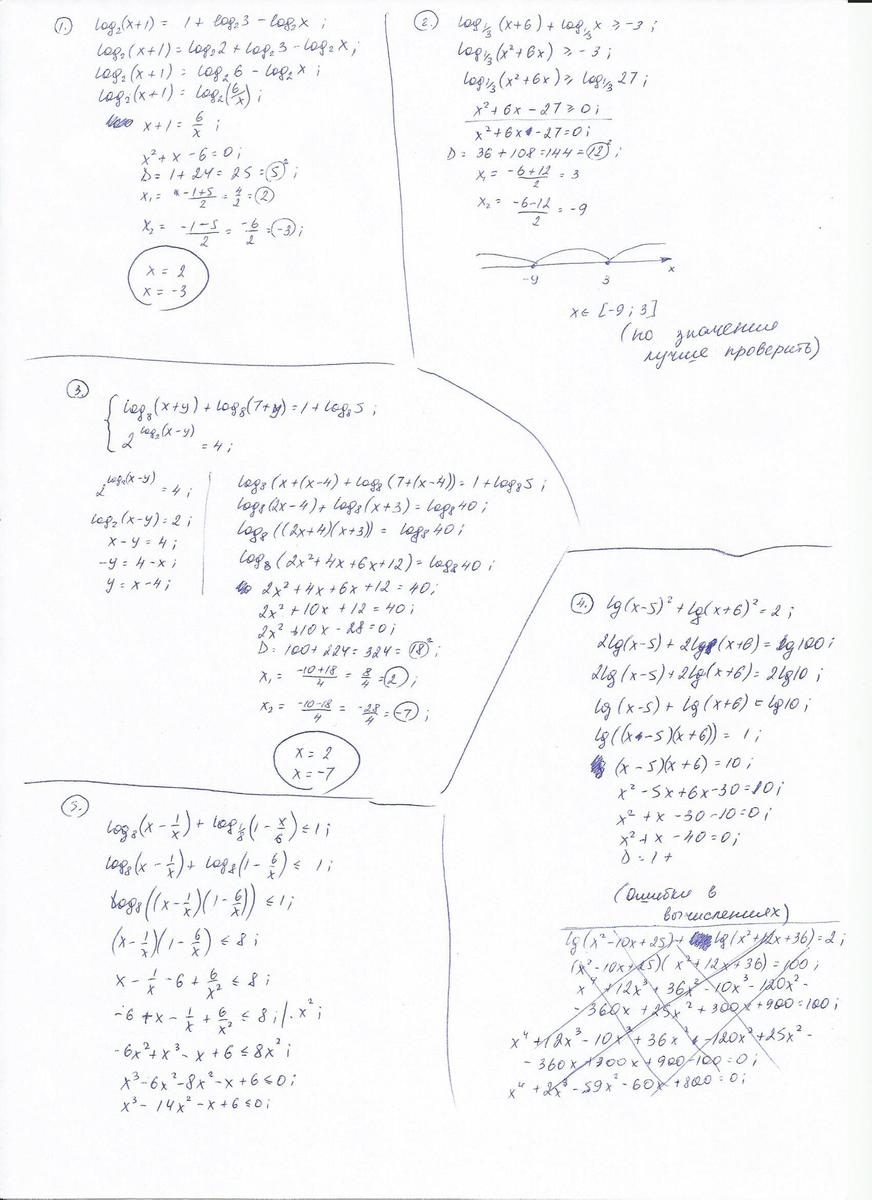 1.
log₂(x+1) = 1 + log₂3 - log₂x ;
log₂(x+1) = log₂2 + log₂3 - log₂x ;
log₂(x+1) = log₂6 - log₂x ;
log₂(x+1) = log₂(6/x) ;
x+1 = 6/x ;
x² + x - 6 = 0 ;
D = 1 + 24 = 25 = 5² ;
x₁ = (-1+5)/2 = 4/2 = 2
x₂ = (-1-5)/2 = -6/2 = -3 ;
x = 2
x = -3
2.
log₁/₃(x+6) + log₁/₃x ≥ -3 ;
log₁/₃(x²+6x) ≥ -3 ;
log₁/₃(x²+6x) ≥ log₁/₃27 ;
x²+6x-27 ≥ 0 ;
x²+6x-27=0 ;
D = 36 + 108 = 144 = 12² ;
x₁ = (-6+12)/2 = 3
x₂ = (-6-12)/2 = -9
-9 3 x
x ∈ [-9 ; 3]
(но значения
лучше проверить)
3.
log₈(x+y) + log₈(7+y) = 1 + log₈5 ;
2^(log₂(x-y)) = 4 ;
2^(log₂(x-y)) = 4 ;
log₂(x-y) = 2 ;
x-y = 4 ;
-y = 4-x ;
y = x-4 ;
log₈(x+(x-4) + log₈(7+(x-4)) = 1 + log₈5 ;
log₈(2x-4) + log₈(x+3) = log₈40 ;
log₈((2x+4)(x+3)) = log₈40 ;
log₈(2x²+4x+6x+12) = log₈40 ;
2x²+4x+6x+12 = 40 ;
2x²+10x+12 = 40 ;
2x²+10x-28=0 ;
D = 100+224 = 324 = 18² ;
x₁ = (-10+18)/4 = 8/4 = 2 ;
x₂ = (-10-18)/4 = -28/4 = -7 ;
x = 2
x = -7
4.
lg(x-5)² + lg(x+6)² = 2 ;
2lg(x-5) + 2lg(x+6) = lg100 ;
2lg(x-5) + 2lg(x+6) = 2lg10 ;
lg(x-5) + lg(x+6) = lg10 ;
lg((x-5)(x+6)) = 1 ;
(x-5)(x+6) = 10 ;
x²-5x+6x-30=10 ;
x²+x-30-10=0 ;
x²+x-40=0 ;
D = 1 +
(Ошибка в
вычислениях)
lg(x²-10x+25) + lg(x²+12x+36) = 2 ;
(x²-10x+25)(x²+12x+36) = 100 ;
x⁴+12x³+36x²-10x³-120x²-
-360x+25x²+300x+900=100 ;
x⁴+12x³-10x³+36x²-120x²+25x²-
-360x+300x+900-100=0 ;
x⁴+2x³-59x²-60x+800=0 ;
5.
log₈(x - 1/x) + log₁/₈(1 - x/6) ≤ 1 ;
log₈(x - 1/x) + log₈(1 - 6/x) ≤ 1 ;
log₈((x - 1/x)(1 - 6/x)) ≤ 1 ;
(x - 1/x)(1 - 6/x) ≤ 8 ;
x - 1/x - 6 + 6/x² ≤ 8 ;
-6 + x - 1/x + 6/x² ≤ 8 ; | · x² ;
-6x²+x³-x+6 ≤ 8x² ;
x³-6x²-8x²-x+6 ≤ 0 ;
x³-14x²-x+6 ≤ 0 ;